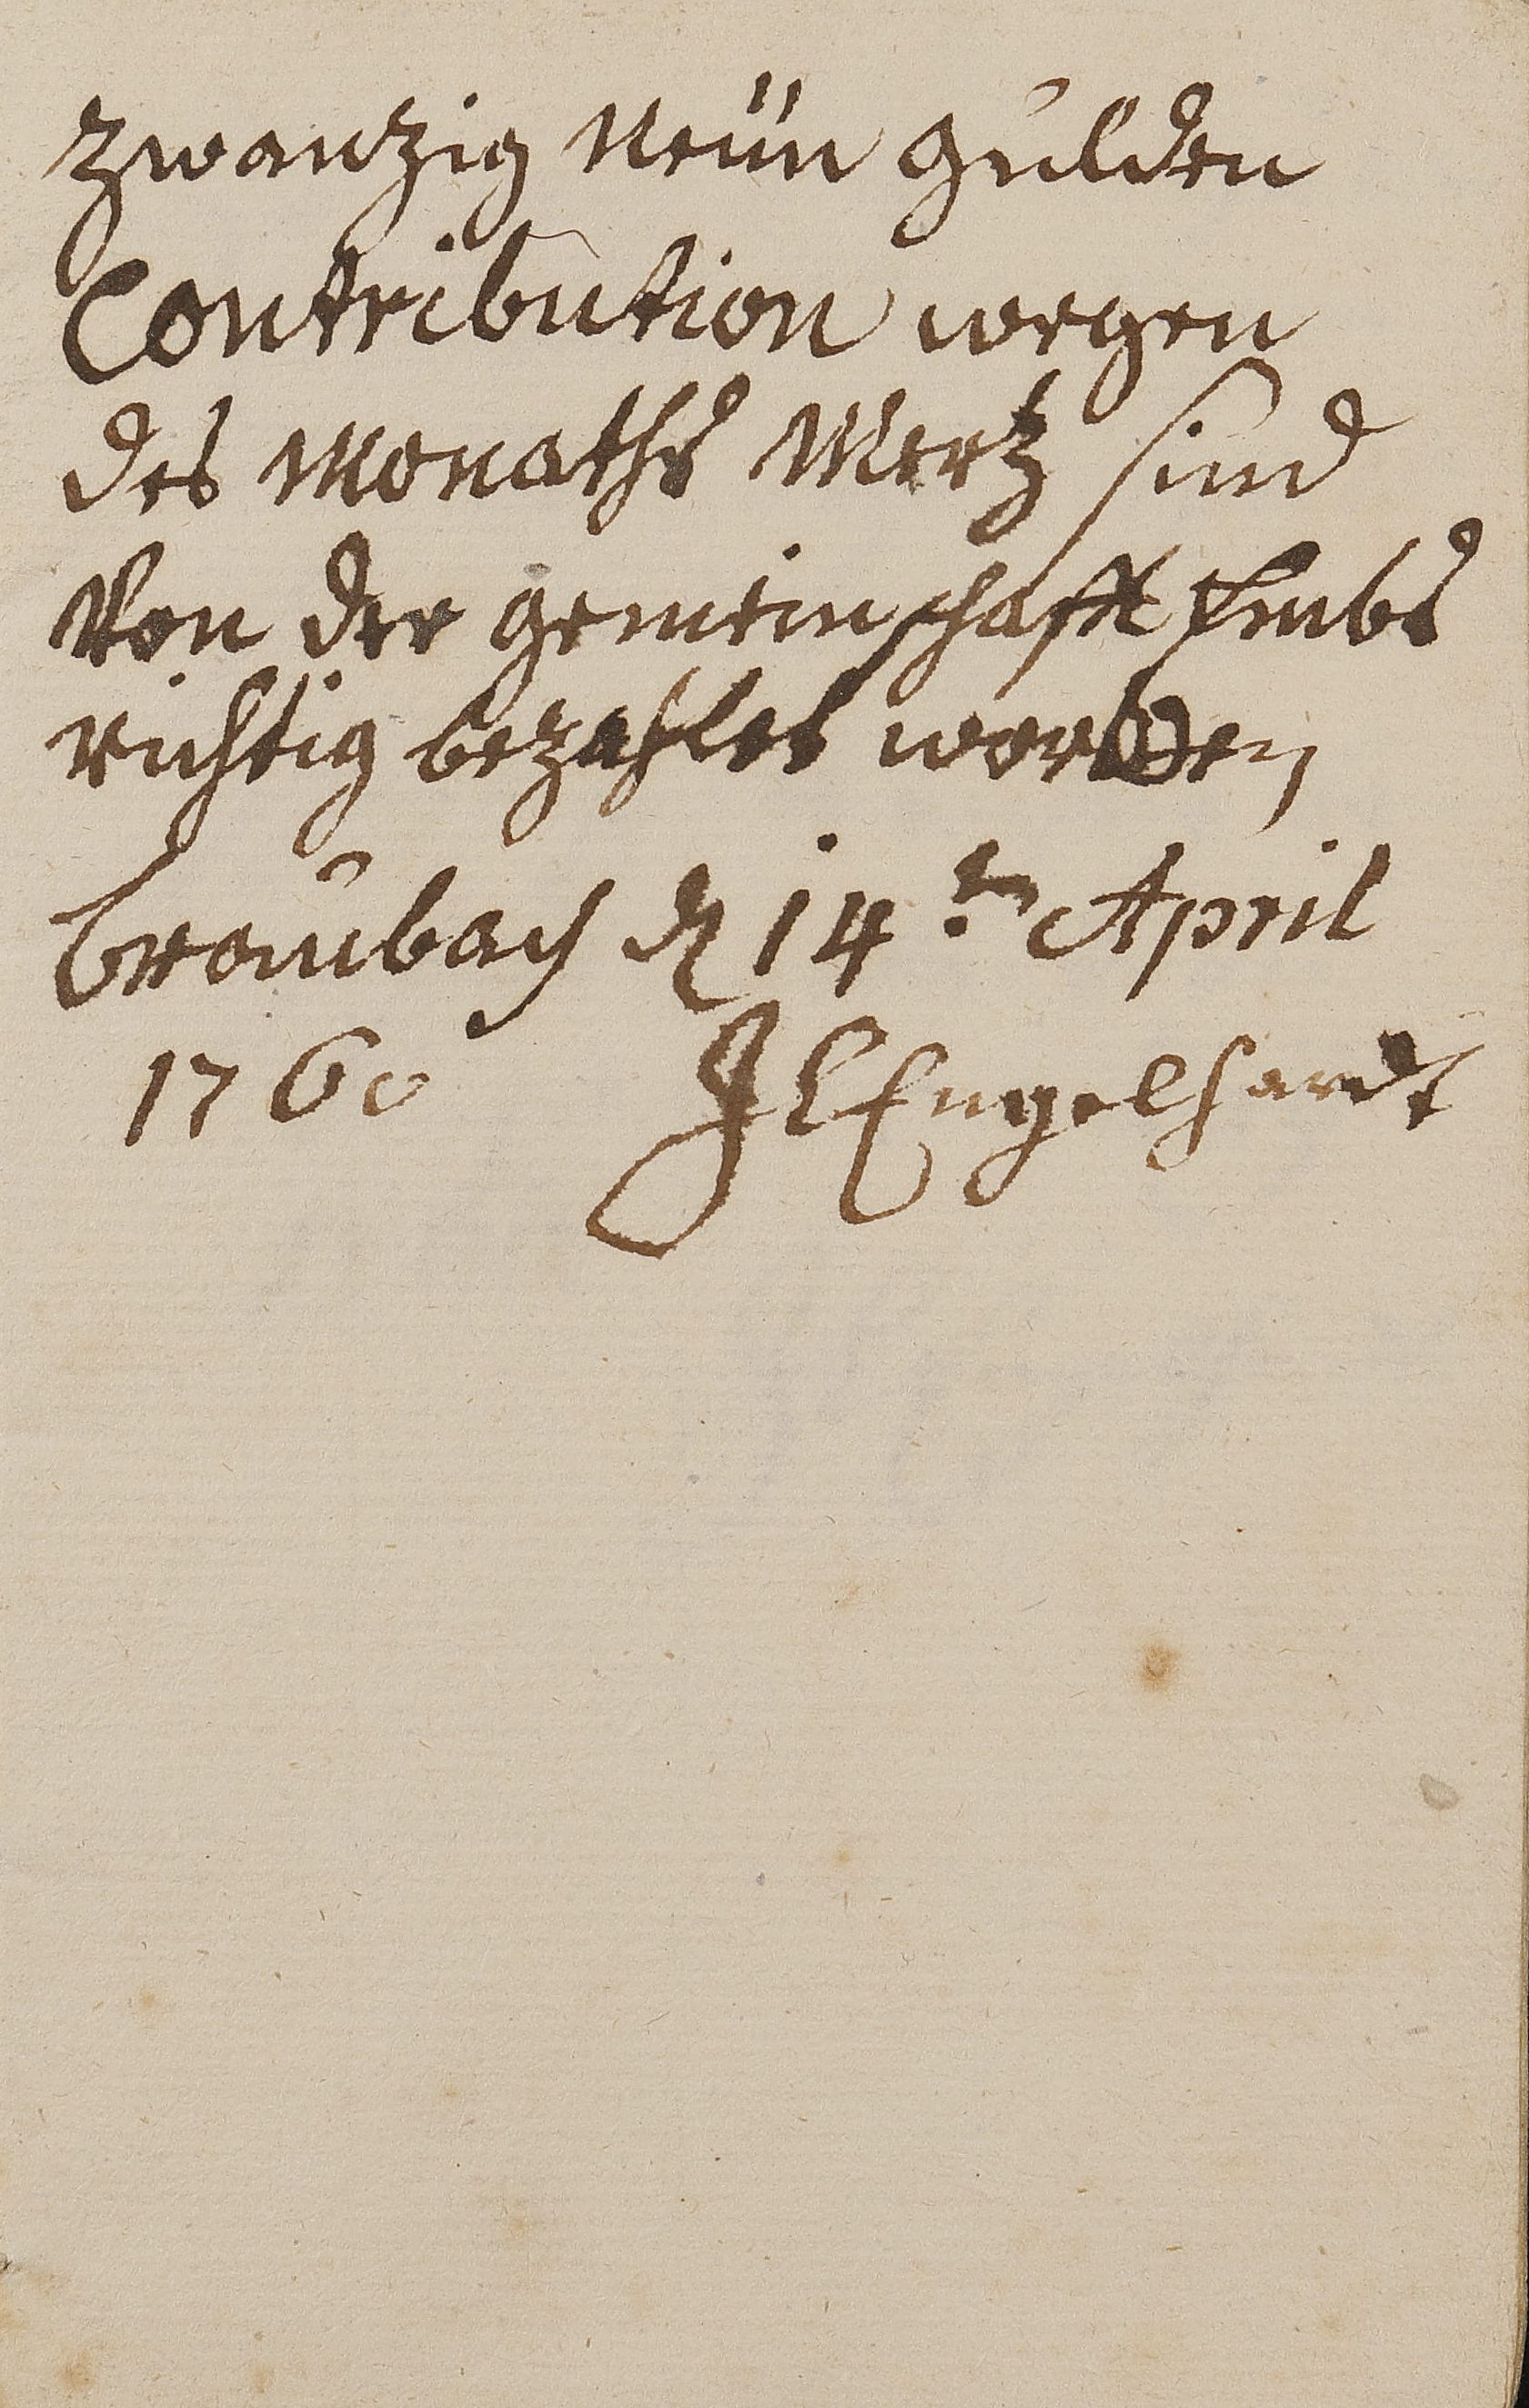 Zwanzig Neün gulden
Contribution wegen
des Monaths Mertz sind
Von der gemeinschafft Embs
richtig bezahlet worden
Braubach d 14ten April
1760 JL Engelhardt